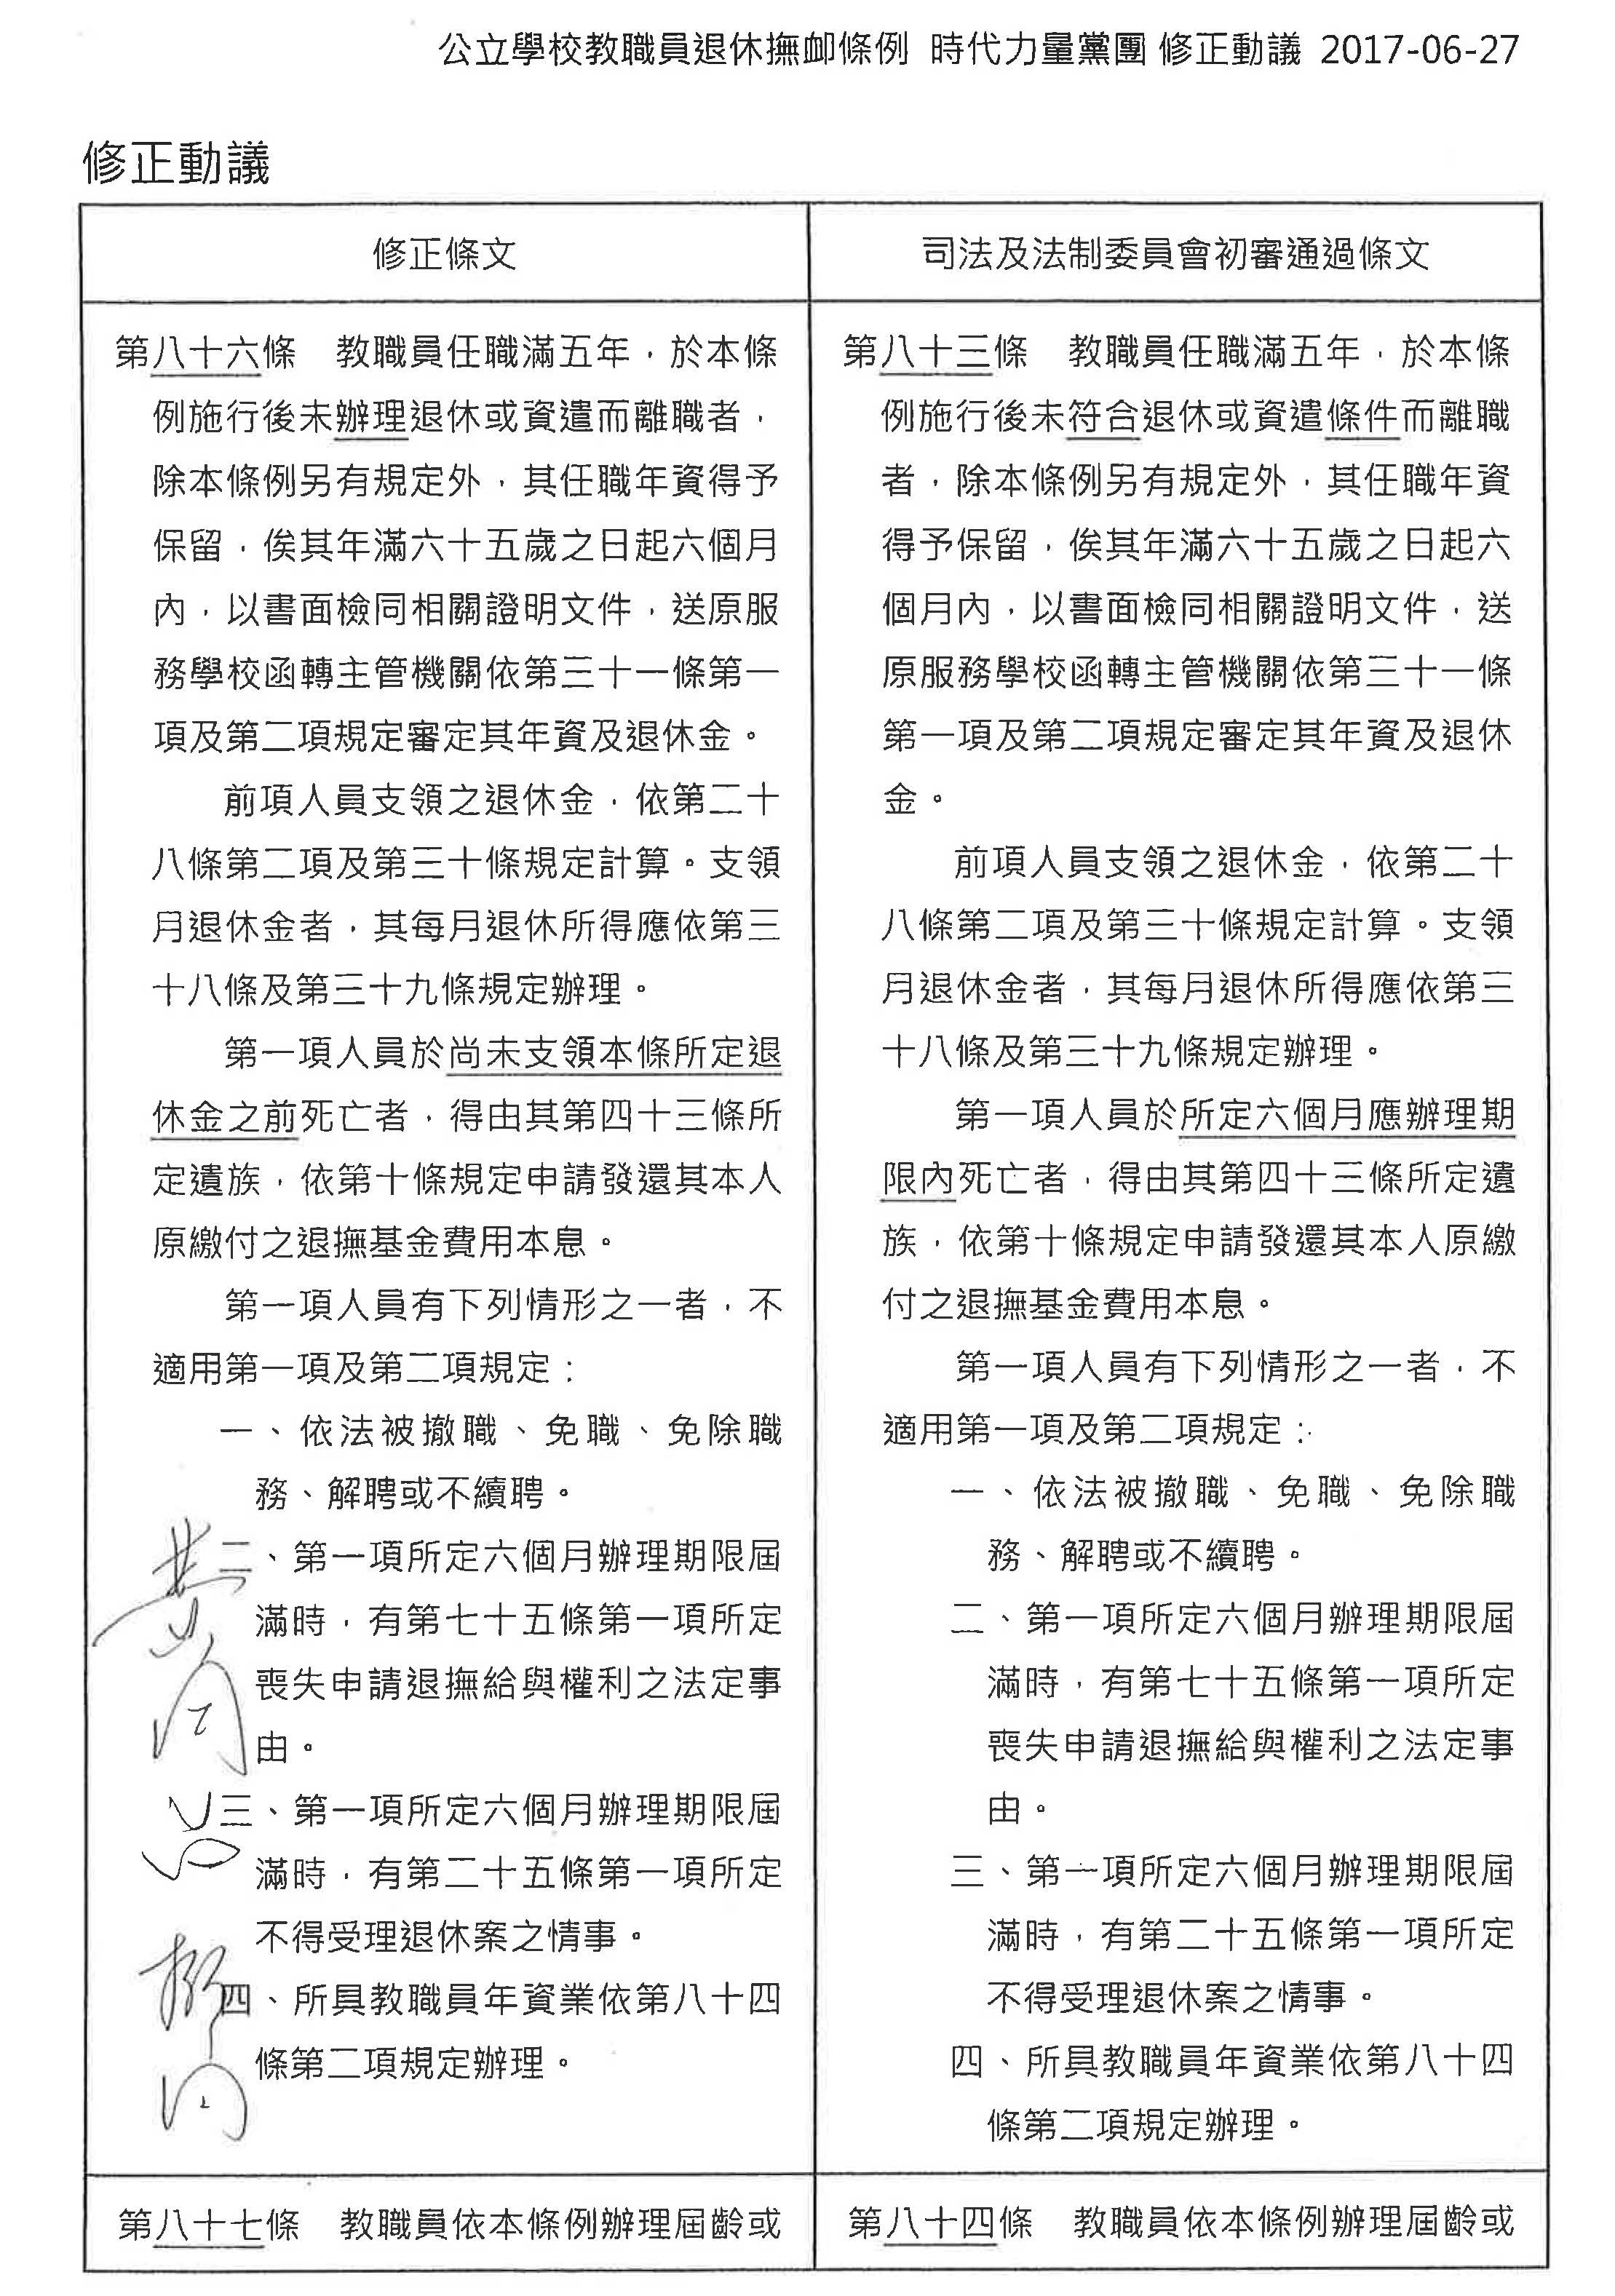 公立學校教職員退休撫卹條例 時代力量黨團 修正動議 2017-06-27
修正動議
修正條文
第八十六條　教職員任職滿五年，於本條
例施行後未辦理退休或資遣而離職者，
除本條例另有規定外，其任職年資得予
保留，俟其年滿六十五歲之日起六個月
內，以書面檢同相關證明文件，送原服
務學校函轉主管機關依第三十一條第一
項及第二項規定審定其年資及退休金。
前項人員支領之退休金，依第二十
八條第二項及第三十條規定計算。支領
月退休金者，其每月退休所得應依第三
十八條及第三十九條規定辦理。
第一項人員於尚未支領本條所定退
休金之前死亡者，得由其第四十三條所
定遺族，依第十條規定申請發還其本人
原繳付之退撫基金費用本息。
第一項人員有下列情形之一者，不
適用第一項及第二項規定：
一、依法被撤職、免職、免除職
務、解聘或不續聘。
二、第一項所定六個月辦理期限屆
滿時，有第七十五條第一項所定
喪失申請退撫給與權利之法定事
由。
三、第一項所定六個月辦理期限屆
滿時，有第二十五條第一項所定
不得受理退休案之情事。
四、所具教職員年資業依第八十四
條第二項規定辦理。
第八十七條　教職員依本條例辦理屆齡或
司法及法制委員會初審通過條文
第八十三條　教職員任職滿五年，於本條
例施行後未符合退休或資遣條件而離職
者，除本條例另有規定外，其任職年資
得予保留，俟其年滿六十五歲之日起六
個月內，以書面檢同相關證明文件，送
原服務學校函轉主管機關依第三十一條
第一項及第二項規定審定其年資及退休
金。
前項人員支領之退休金，依第二十
八條第二項及第三十條規定計算。支領
月退休金者，其每月退休所得應依第三
十八條及第三十九條規定辦理。
第一項人員於所定六個月應辦理期
限內死亡者，得由其第四十三條所定遺
族，依第十條規定申請發還其本人原繳
付之退撫基金費用本息。
第一項人員有下列情形之一者，不
適用第一項及第二項規定：
一、依法被撤職、免職、免除職
務、解聘或不續聘。
二、第一項所定六個月辦理期限屆
滿時，有第七十五條第一項所定
喪失申請退撫給與權利之法定事
由。
三、第一項所定六個月辦理期限屆
滿時，有第二十五條第一項所定
不得受理退休案之情事。
四、所具教職員年資業依第八十四
條第二項規定辦理。
第八十四條　教職員依本條例辦理屆齡或